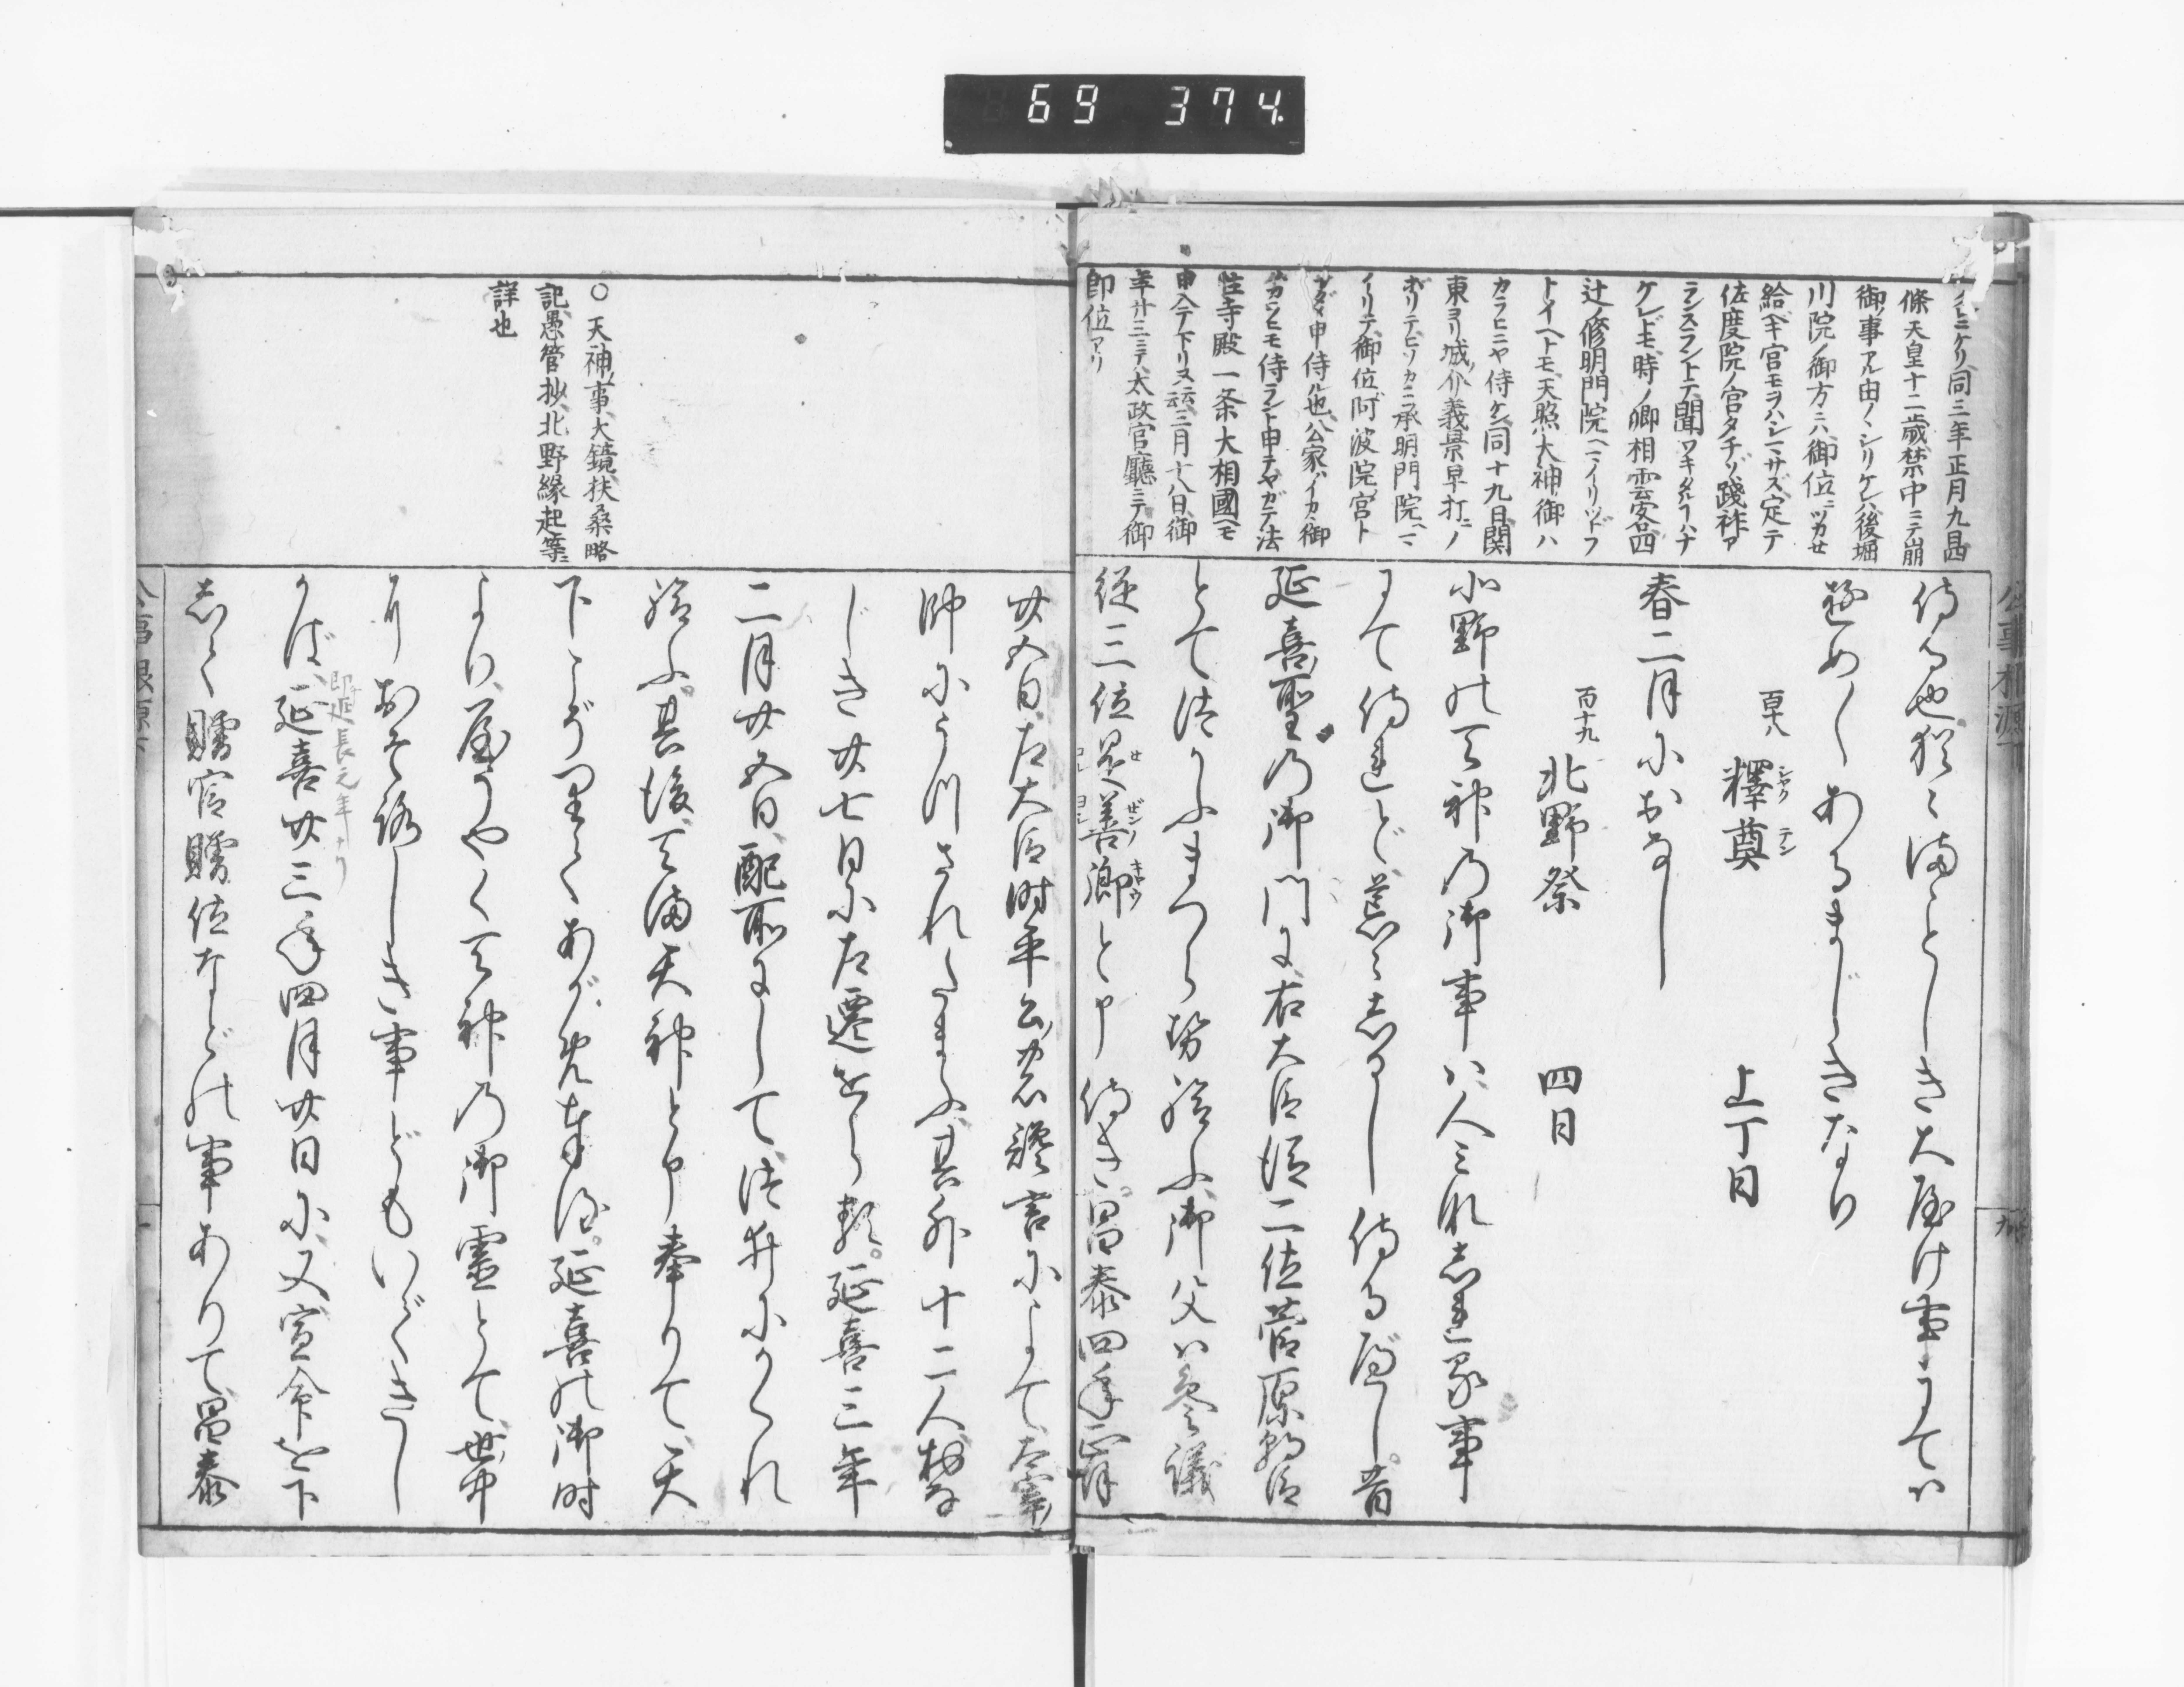 69 374
イニケリ同三年正月九日四
條天皇十二歳禁中ニテ崩
御ノ事アル由ノヽシリケレバ後堀
川院ノ御方ニハ御位ニツカセ
給ベキ宮モヲハシマサズ定テ
佐度院ノ宮タチゾ踐祚ア
ランスラントテ聞ワキタルカタハナ
ケレドモ時ノ卿相雲客四
辻ノ修明門院ヘマイリツドフ
トイヘトモ天照大神ノ御ハ
カラヒニヤ侍ケン同十九日関
東ヨリ城介義景早打ニノ
ボリテヒソカニ承明門院ヘマ
イリテ御位ハ阿波院宮ト
サダメ申侍ル也公家ハイカヾ御
ハカラヒモ侍ラント申テヤガテ法
性寺殿一条大相國ヘモ
申含テ下リヌ云云三月十八日御
年廿三ニテ太政官廳ニテ御
即位アリ
侍る也猶〻まことしき大庭け事にては
極めしあるまじきなり
百十八 釋奠 シヤクテン 上丁日
春二月におなし
百十九 北野祭 四日
北野の天神の御事ハ人みな志れる事
にて侍れど荒〻志るし侍るべし昔
延喜聖の御門に右大臣従二位菅原朝臣
とてつかふまつらせ給ふ御父ハ参議
従三位是善卿と申侍き昌泰四年正月
廿五日左大臣時平公ノ讒言によて太宰ノ
帥にうつされたまふ其外十二人おな
じき廿七日に左遷せらる延喜三年
二月廿五日配所にしてつゐにかくれ
給ふ其後天満天神と申奉りて天
下こぞつてあがめ奉る延喜の御時
より屋うやく天神の御霊とて世ノ中
にりおそろしき事どもいできし
かば延喜廿三年四月廿日に又宣命を下
即延長元年ナリ
志て贈官贈位などの事ありて昌泰
○天神ノ事大鏡扶桑略
記愚管抄北野縁起等ニ
詳也
公事根源下